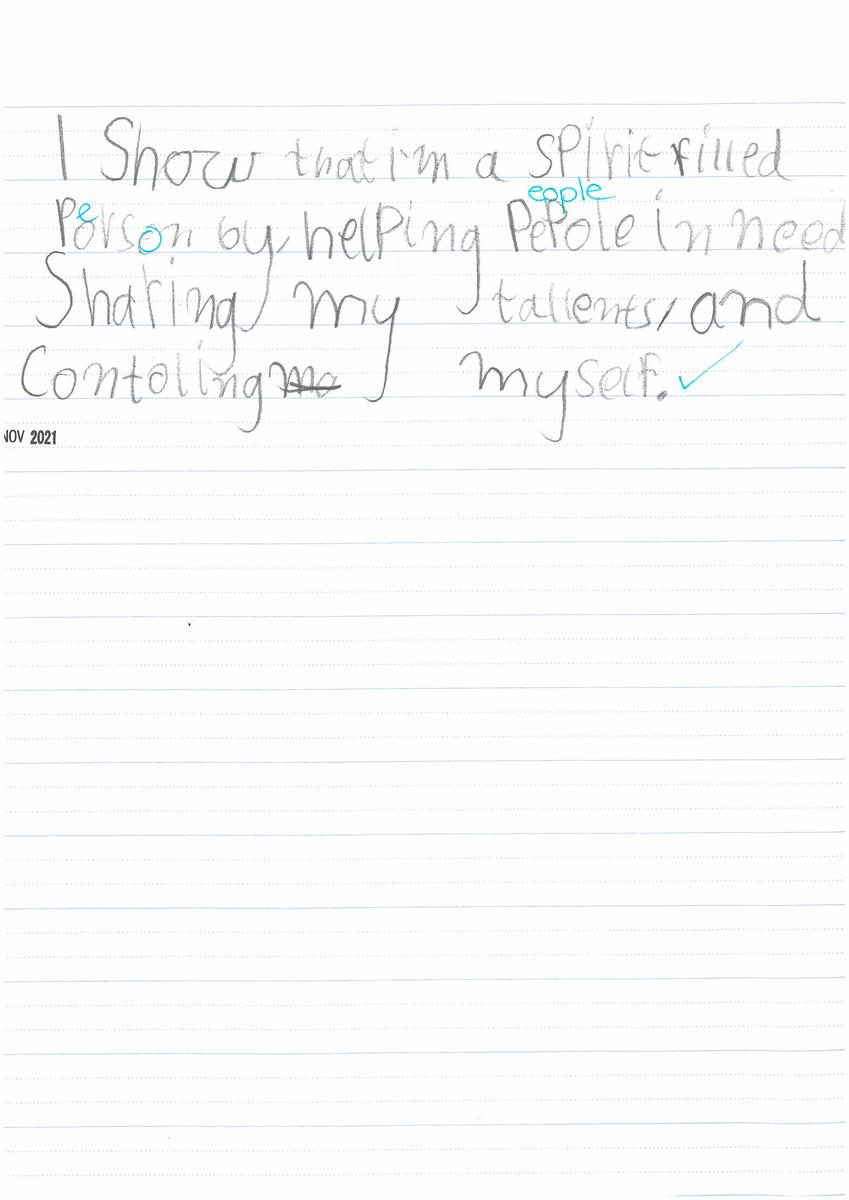 I Show that i'm a spirit-filled
eople
Person by helping PePole in need
Sharing my tallents, and
Contoling myself.
NOV 2021